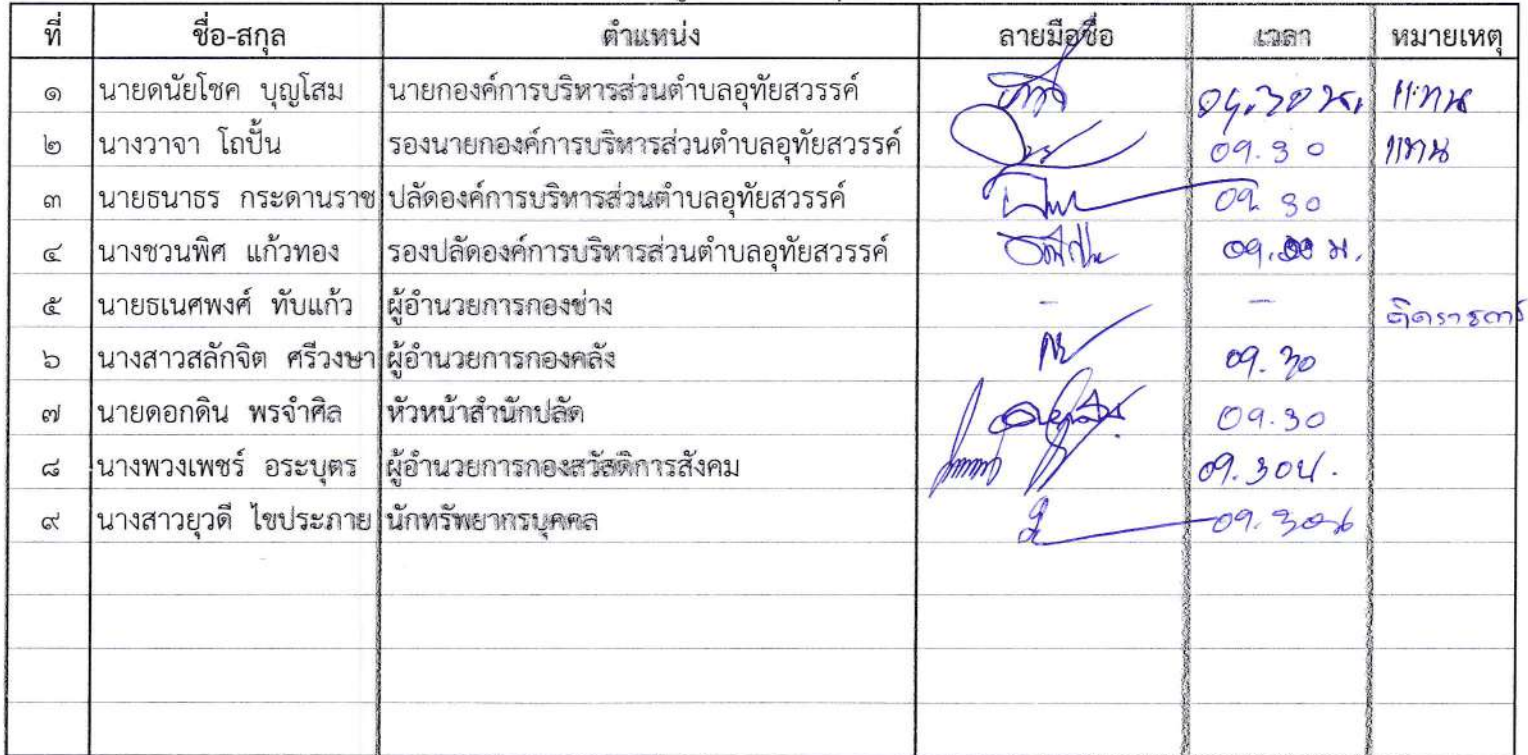 ที่ ชื่อ-สกุล ตำแหน่ง ลายมือชื่อ เวลา หมายเหตุ
๑ นายดนัยโชค บุญโสม นายกองค์การบริหารส่วนตำบลอุทัยสวรรค์ 09.30 น. แทน
๒ นางวาจา โถปั้น รองนายกองค์การบริหารส่วนตำบลอุทัยสวรรค์ 09.30 แทน
๓ นายธนาธร กระดานราช ปลัดองค์การบริหารส่วนตำบลอุทัยสวรรค์ 09.30
๔ นางชวนพิศ แก้วทอง รองปลัดองค์การบริหารส่วนตำบลอุทัยสวรรค์
๕ นายธเนศพงศ์ ทับแก้ว ผู้อำนวยการกองช่าง - - ติดราชการ
๖ นางสาวสลักจิต ศรีวงษา ผู้อำนวยการกองคลัง 09.30
๗ นายดอกดิน พรจำศิล หัวหน้าสำนักปลัด 09.30
๘ นางพวงเพชร์ อระบุตร ผู้อำนวยการกองสวัสดิการสังคม 09.30 น.
๙ นางสาวยุวดี ไขประภาย นักทรัพยากรบุคคล 09.30 น